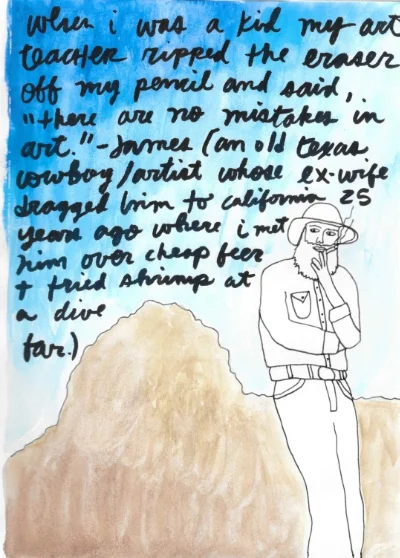 when i was a kid my art
teacher ripped the eraser
off my pencil and said,
"there are no mistakes in
art." - James (an old texas
cowboy/artist whose ex-wife
dragged him to california 25
years ago where i met
him over cheap beer
+ fried shrimp at
a dive
bar.)